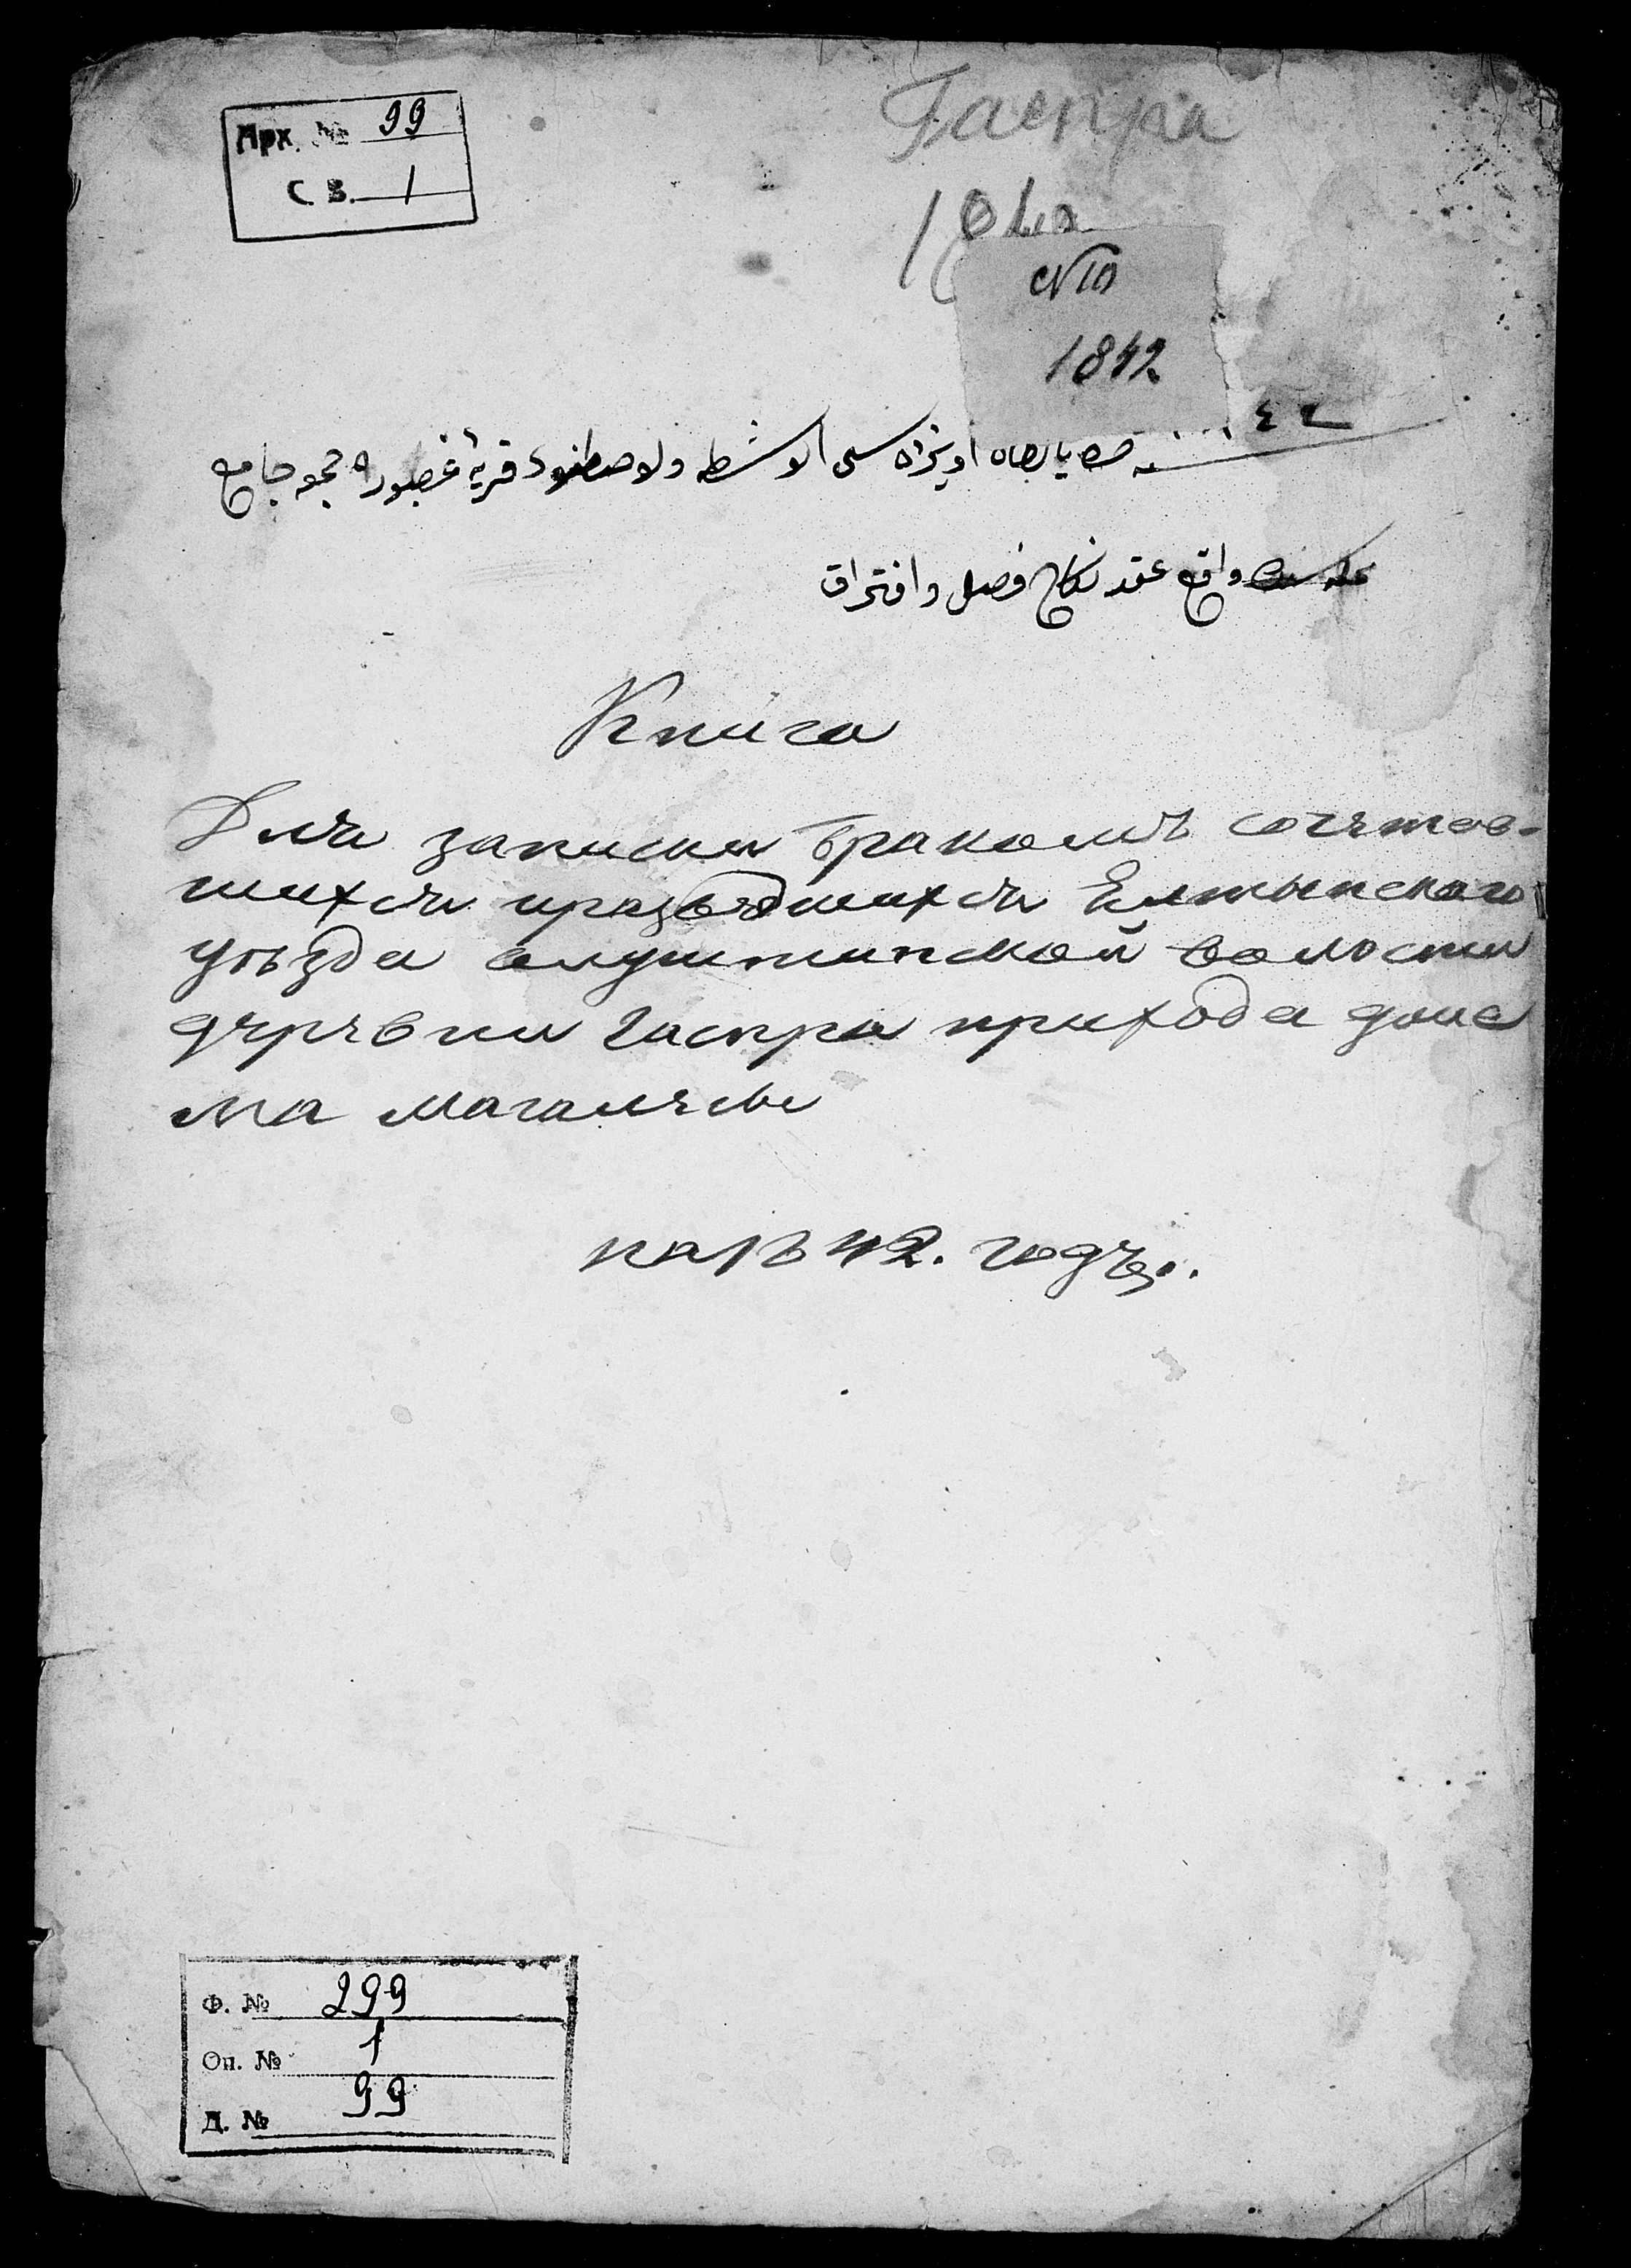 Арх. № 99
С В. 1
Гаспра
184
№ 10
1842
٤٢
اويزداسى الوشطه ولاصطنود قريۀ غصبوره جمعه جامع
محله سنده واقع عقد نكاح فصل وافتراق
Книга
Для записки бракомъ сочетав-
шихся иразведшихся Елтынскаго
уъзда алуштинской волости
деревни Гаспра прихода джа
ма магалясы
на 1842. годъ.
Ф. № 299
Оп. № 1
Д. № 99